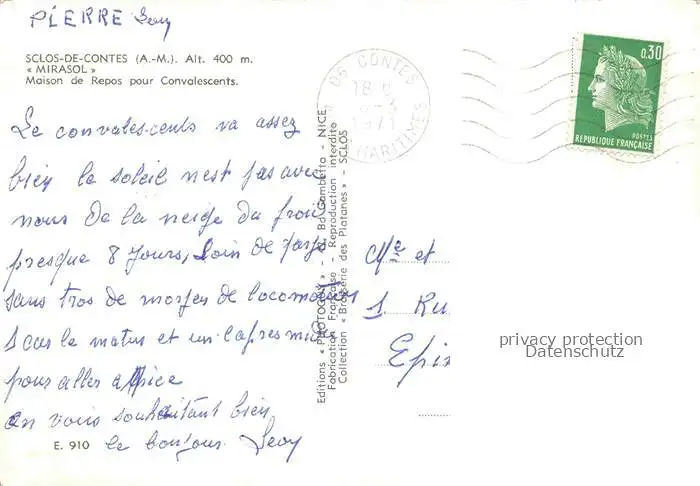 PIERRE Levy
SCLOS-DE-CONTES (A.-M.). Alt. 400 m.
« MIRASOL »
Maison de Repos pour Convalescents.
Le convales-cents va assez
bien le soleil nest pas avec
nous De la neige du froid
presque 8 Jours, Loin de
sans tros de moyen de locomotion
1 car le matin et un l'apres midi
pour aller a Nice
en vous souhaitant bien
le bonjour Levy
E. 910
Editions « PHOTOGUY » - Bd Gambetta - NICE
Fabrication Française - Reproduction interdite
Collection « Brasserie des Platanes » - SCLOS
06 CONTES
18 H
3
1971
MARITIMES
0,30
POSTES
REPUBLIQUE FRANÇAISE
Me et
1. Ru
Epi
privacy protection
Datenschutz